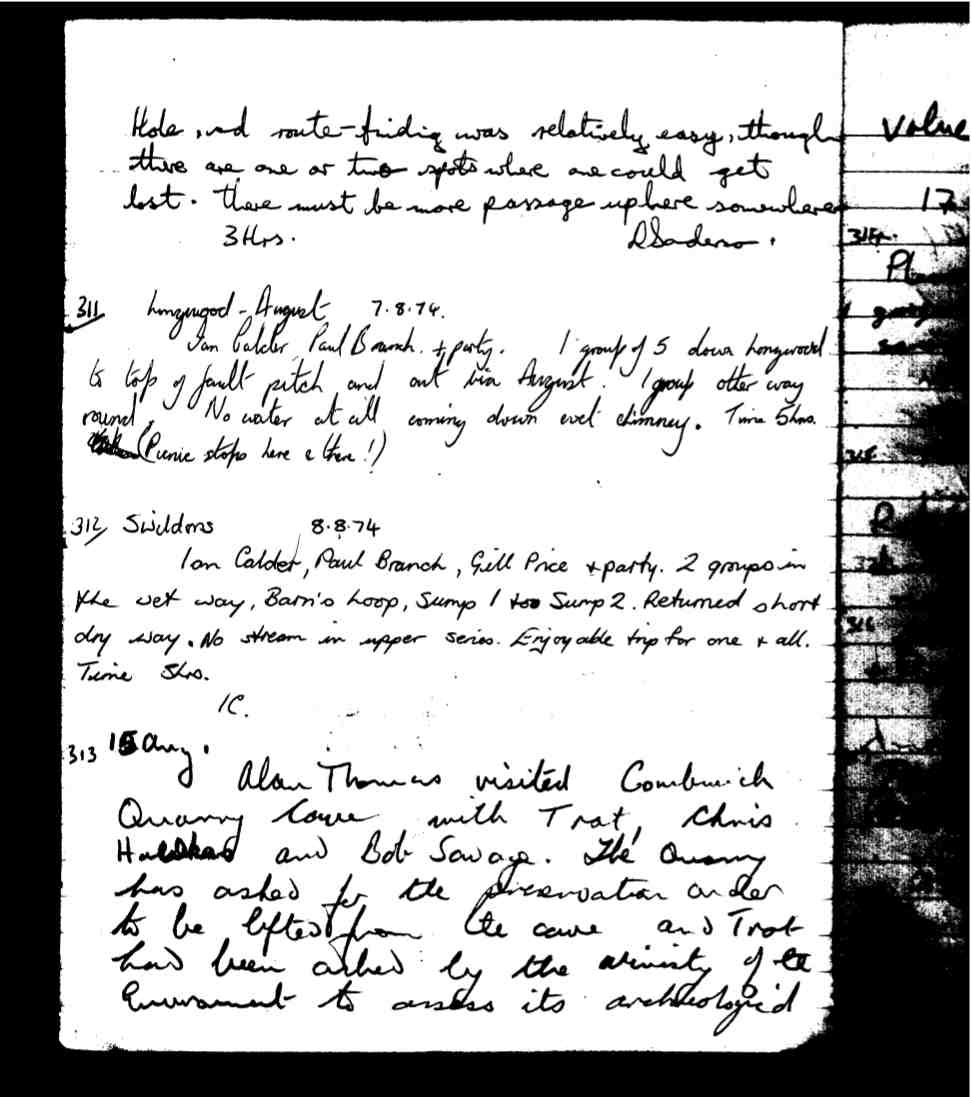 Hole, and route-finding was relatively easy, though
there are one or two spots where one could get
lost. There must be more passage up here somewhere
3 Hrs.
311 Longwood - August 7.8.74.
Ian Calder, Paul Branch. + party. 1 group of 5 down Longwood
to top of fault pitch and out via August. 1 group other way
round. No water at all coming down wet chimney. Time 5hrs.
(Picnic stops here & there!)
312 Swildons 8.8.74
Ian Calder, Paul Branch, Gill Price + party. 2 groups in
the wet way, Barn's Loop, Sump 1 to Sump 2. Returned short
dry way. No stream in upper series. Enjoyable trip for one + all.
Time 5hrs.
IC.
313 15 Aug.
Alan Thomas visited Combwich
Quarry Cave with Trat, Chris
and Bob Savage. The Quarry
has asked for the preservation order
to be lifted from the cave and Trat
had been asked by the ministry of the
Environment to assess its archeological
value
17